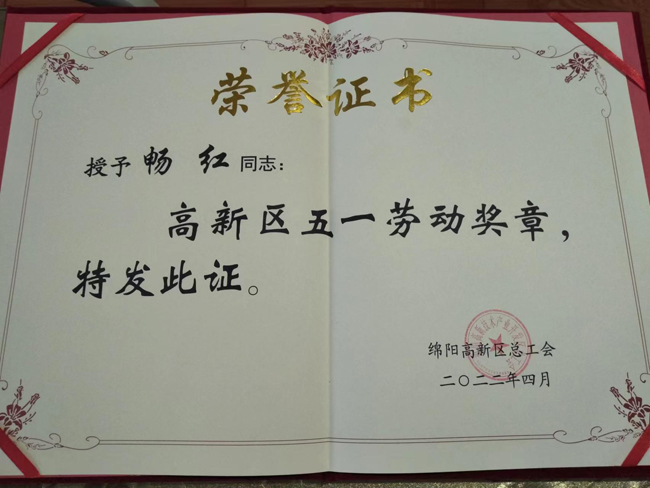 荣誉证书
授予 畅 红 同志：
高新区五一劳动奖章，
特发此证。
绵阳高新区总工会
二〇二二年四月